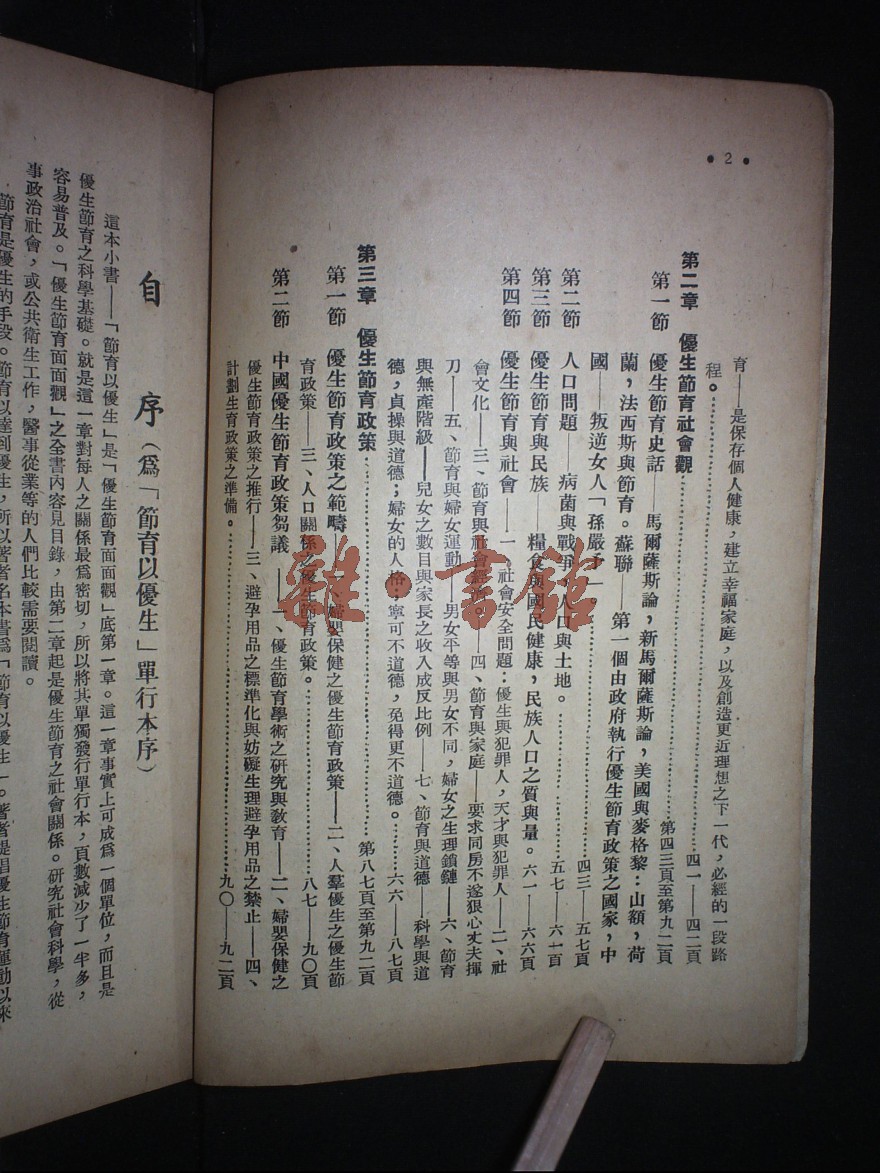 • 2 •
育——是保存個人健康，建立幸福家庭，以及創造更近理想之下一代，必經的一段路
程。……………………………………四一——四二頁
第二章　優生節育社會觀……………………第四三頁至第九二頁
第一節　優生節育史話——馬爾薩斯論，新馬爾薩斯論，美國與麥格黎：山額，荷
蘭，法西斯與節育。蘇聯——第一個由政府執行優生節育政策之國家，中
國——叛逆女人「孫嚴予」……………………四三——五七頁
第二節　人口問題——病菌與戰爭、人口與土地。……………………五七——六一頁
第三節　優生節育與民族——糧食與國民健康，民族人口之質與量。六一——六六頁
第四節　優生節育與社會——一、社會安全問題：優生與犯罪人，天才與犯罪人——二、社
會文化——三、節育與社會經濟。——四、節育與家庭——要求同房不遂狠心丈夫揮
刀——五、節育與婦女運動——男女平等與男女不同，婦女之生理鎖鏈——六、節育
與無產階級——兒女之數目與家長之收入成反比例——七、節育與道德——科學與道
德，貞操與道德；婦女的人格；寧可不道德，免得更不道德。………六六——八七頁
第三章　優生節育政策……………………第八七頁至第九二頁
第一節　優生節育政策之範疇——一、婦嬰保健之優生節育政策——二、人羣優生之優生節
育政策——三、人口關係之優生節育政策。……………………八七——九〇頁
第二節　中國優生節育政策芻議——一、優生節育學術之研究與教育——二、婦嬰保健之
優生節育政策之推行——三、避孕用品之標準化與妨礙生理避孕用品之禁止——四、
計劃生育政策之準備。……………………九〇——九二頁
雜·書館
自　序（爲「節育以優生」單行本序）
這本小書——「節育以優生」是「優生節育面面觀」底第一章。這一章事實上可成爲一個單位，而且是
優生節育之科學基礎。就是這一章對每人之關係最爲密切，所以將其單獨發行單行本，頁數減少了一半多，
容易普及。「優生節育面面觀」之全書內容見目錄，由第二章起是優生節育之社會關係。研究社會科學，從
事政治社會，或公共衛生工作，醫事從業等的人們比較需要閱讀。
節育是優生的手段。節育以達到優生，所以著者名本書爲「節育以優生」。著者提倡優生節育運動以來